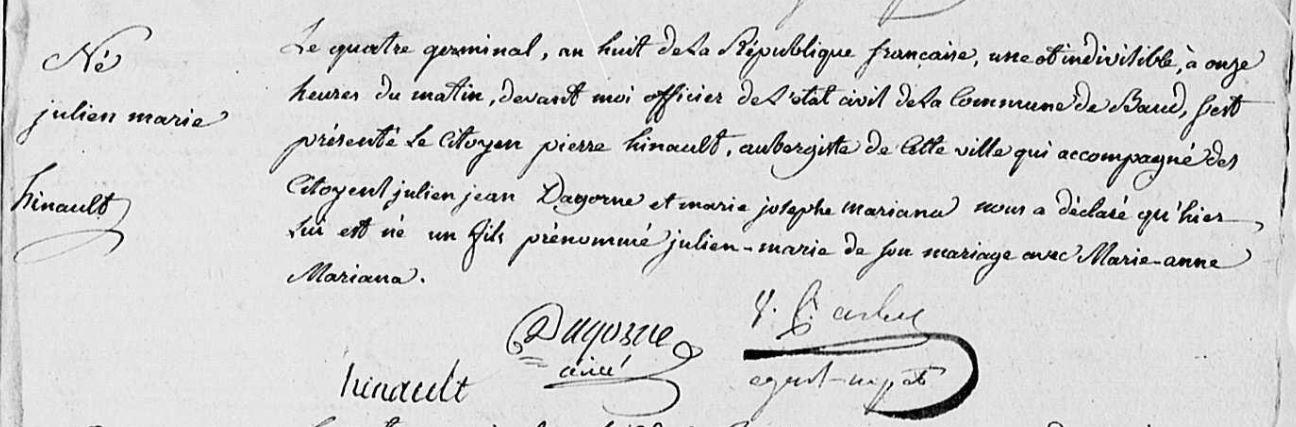 Né
julien marie
hinault
Le quatre germinal, an huit de la République française, une et indivisible, à onze
heures du matin, devant moi officier de l'état civil de la Commune de Baud, s'est
présenté le Citoyen pierre hinault, aubergiste de cette ville qui accompagné des
Citoyens julien jean Dagorne et marie josephe mariana nous a déclaré qu'hier
lui est né un fils prénommé julien-marie de son mariage avec Marie-anne
Mariana.
Dagorne
ainé
hinault
agent